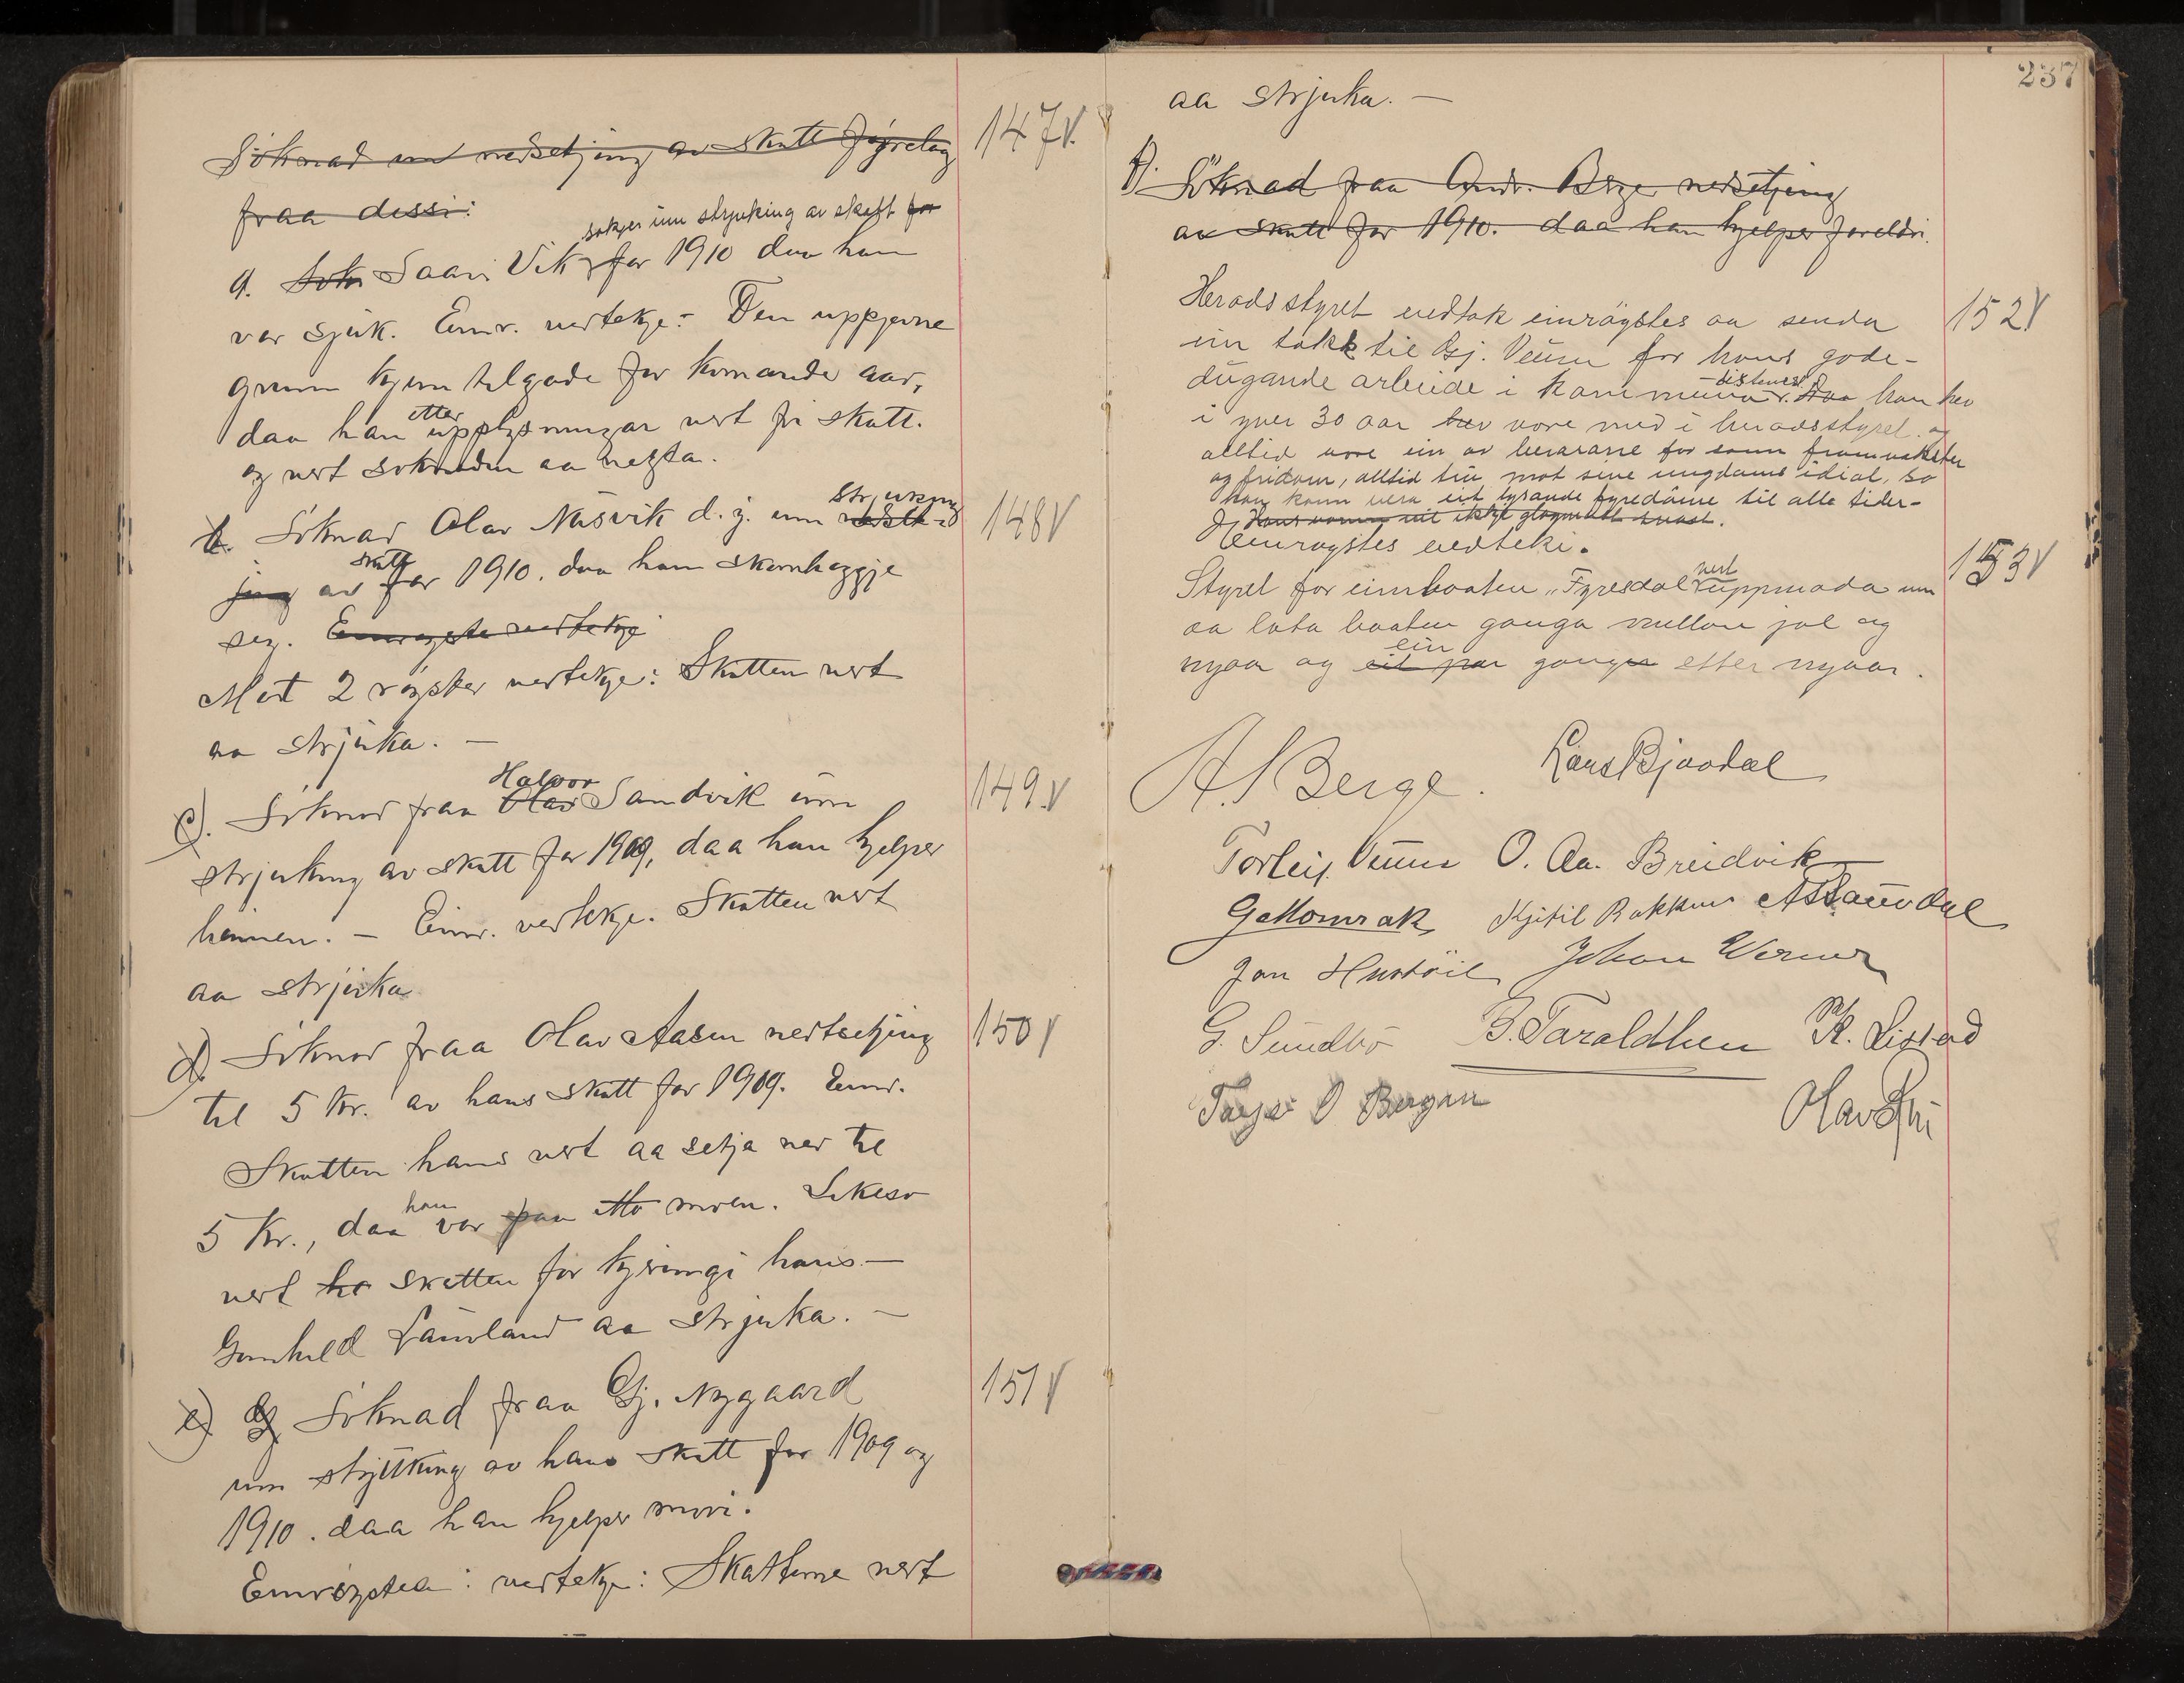 Söknad um nedsetjing av skatt fyrelag
147 V.
fraa dessi:
sökjer um strjuking av skatt for
a. Sök Saavi Vik for 1910 daa han
var sjuk. Einr. vertekje: Den uppgjevne
grunn kjem tilgode for komande aar,
daa han etter upplysningar vert fri skatt.
og vert söknaden aa negta.
b. Söknad Olav Näsvik d. y. um strjuking nedset-
148 V
jing av skatt for 1910. daa han skamhøggje
seg. Einrøystes vedtekje
Mot 2 røyster vertekje: Skatten vert
aa strjuka. —
c). Söknad fraa Olav Halvor Sandvik um
149. V
strjuking av skatt for 1909, daa han hjelper
heimen. — Einr. vertekje. Skatten vert
aa strjuka
d) Söknad fraa Olav Aasen nedsetjing
150 V
til 5 kr. av hans skatt for 1909. Einr.
Skatten hans vert aa setja ned til
5 Kr., daa han var paa moen. Likeso
vert ha skatten for kjeringi hans —
Gunhild Lauvland aa strjuka. —
e) Söknad fraa Gj. Nygaard
151 V
um strjuking av hans skatt for 1909 og
1910. daa han hjelper mori.
Einröystes: vertekje: Skattarne vert
237
aa strjuka. —
f). Söknad fraa Andr. Berge nedsetjing
av skatt for 1910. daa han hjelper foreldri.
Heradsstyret vedtok einröystes aa senda
152 V
ein takk til Gj. Veum for hans gode-
dugande arbeide i kommuna.
i yver 30 aar hev vore med i heradsstyret. og
alltid vore ein av berarane for sann framvokster
og fridom, alltid tru mot sine ungdoms ideal, so
han kann vera eit lysande fyredöme til alle tider-
Einröystes vedteki.
Styret for eimbaaten "Fyresdal" vert uppmoda um
153 V
aa lata baaten ganga millom jol og
nyaar og eit par ein gonger etter nyaar.
A. S. Berge. Lars Bjaadal
Torleiv Veum O. Aa. Breidvik
G. Momrak Kjetil Bakkane A S Lauvdal
Jon Hustöil Johan Verner
G. Sundbö B. Taraldlien K. Listad
Tarjei O Bergan Olav